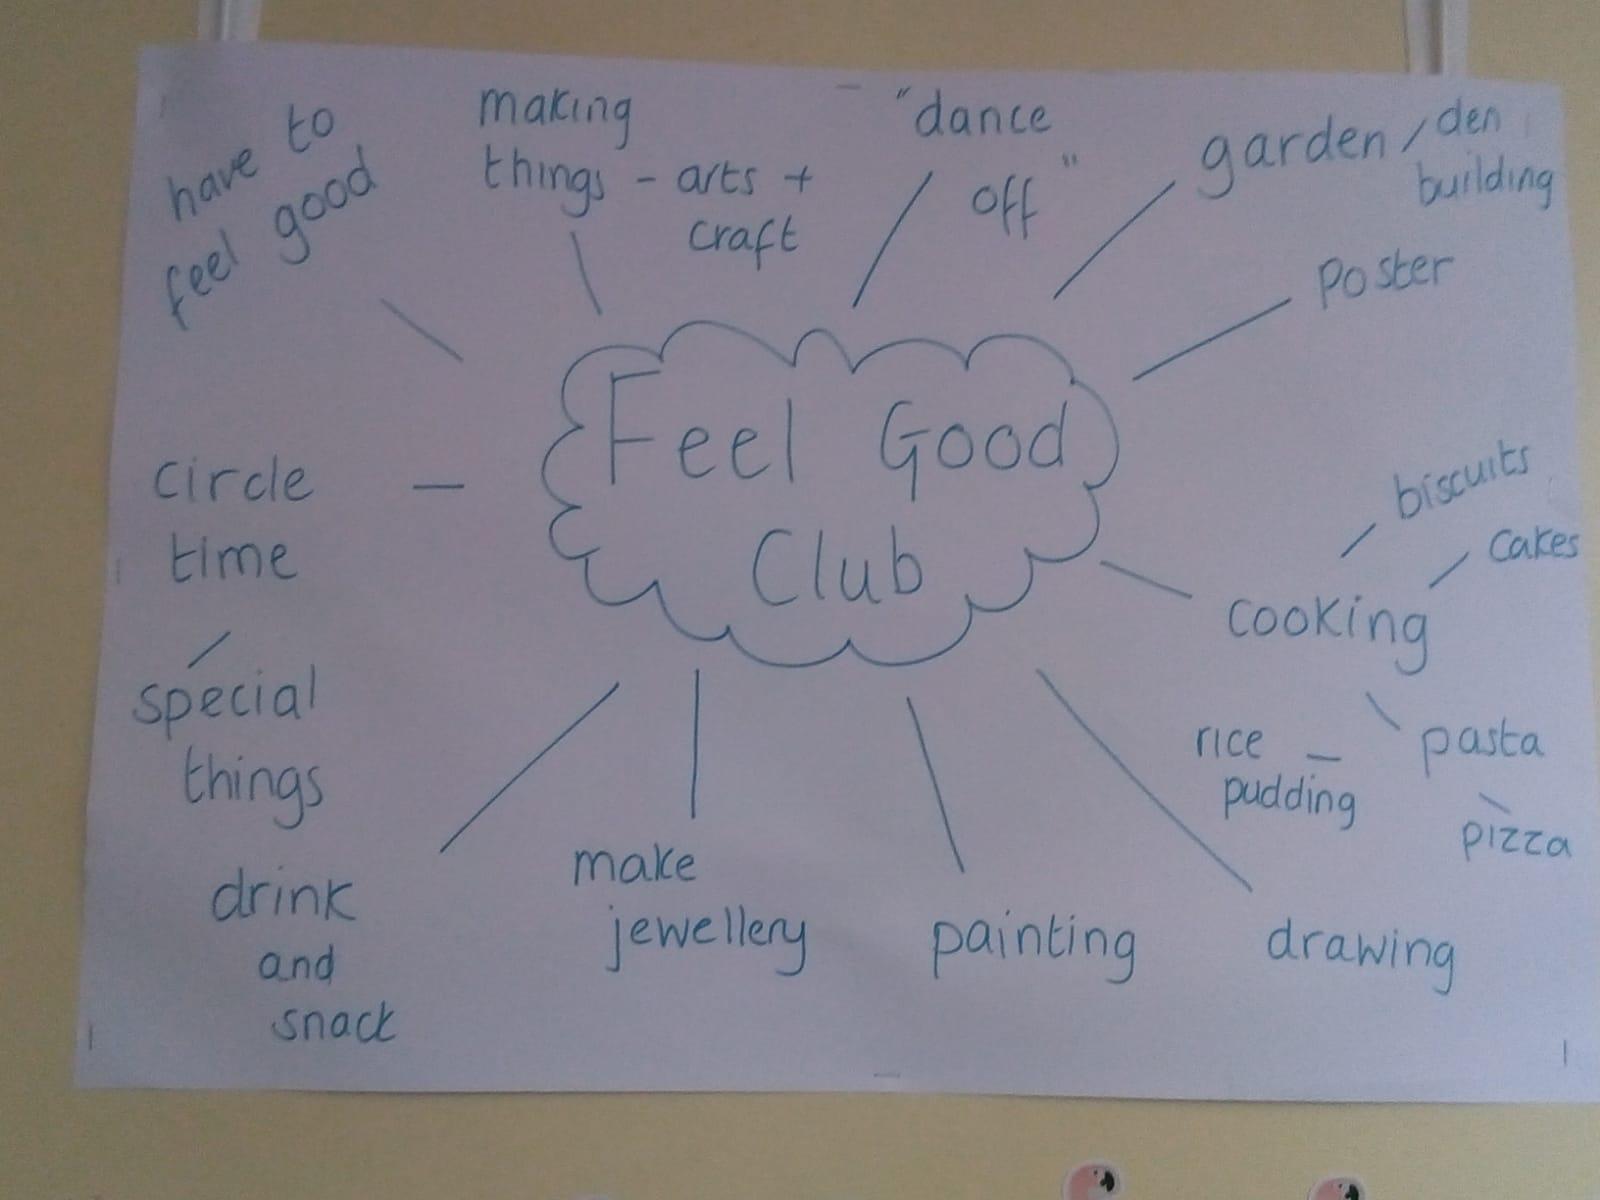 have to
feel good
making
things - arts +
craft
"dance
off"
garden / den
building
poster
Feel Good
Club
circle
time
special
things
drink
and
snack
make
jewellery
painting
drawing
cooking
biscuits
cakes
pasta
pizza
rice
pudding